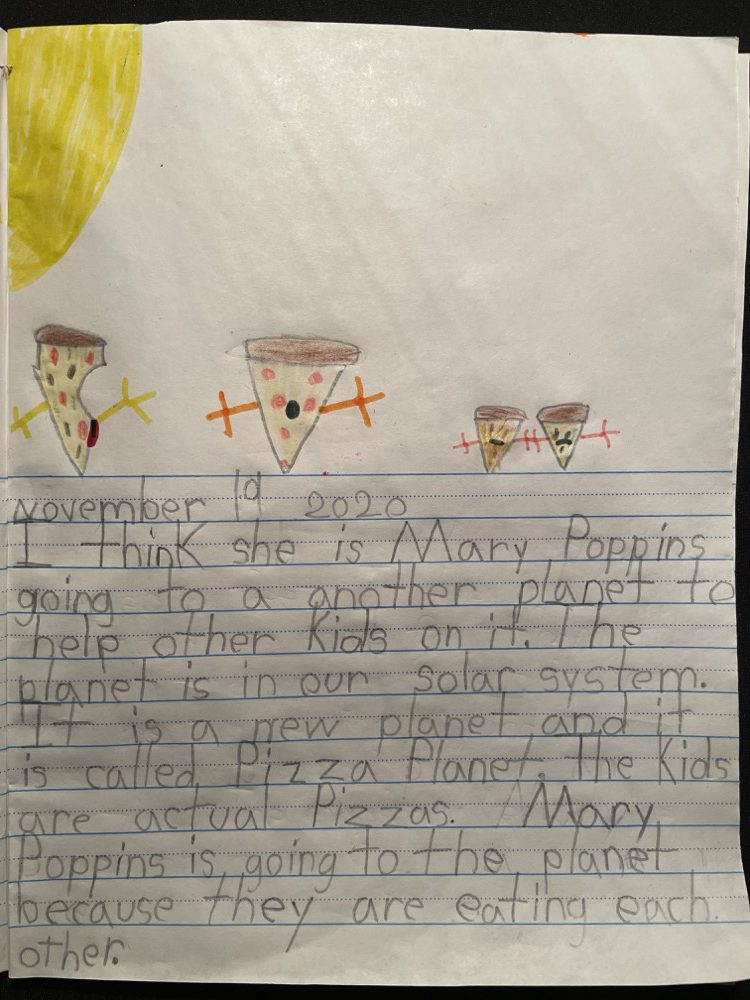 November 19 2020
I think she is Mary Poppins
going to a another planet to
help other kids on it. The
planet is in our solar system.
It is a new planet and it
is called Pizza Planet. The kids
are actual Pizzas. Mary
Poppins is going to the planet
because they are eating each
other.